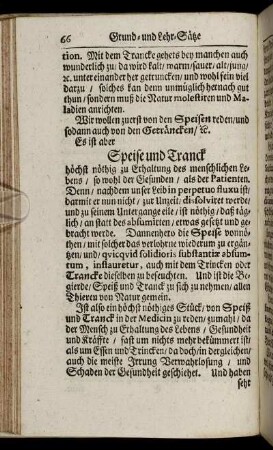 66 Grund- und Lehr-Sätze
tion. Mit dem Trancke gehets bey manchen auch
wunderlich zu; da wird kalt/ warm/ sauer/ alt/ jung/
ꝛc. unter einander her getruncken/ und wohl sein viel
darzu / solches kan denn unmüglich hernach gut
thun / sondern muß die Natur molestiren und Ma-
ladien anrichten.
Wir wollen zuerst von den Speisen reden/ und
sodann auch von den Geträncken/ ꝛc.
Es ist aber
Speise und Tranck
höchst nöthig zu Erhaltung des menschlichen Le-
bens / so wohl der Gesunden / als der Patienten.
Denn / nachdem unser Leib in perpetuo fluxu ist/
darmit er nun nicht / zur Unzeit/ dissolviret werde/
und zu seinem Untergange eile / ist nöthig/ daß täg-
lich / an statt des absumirten / etwas gesetzt und ge-
bracht werde. Dannenhero die Speise vonnö-
then / mit solcher das verlohrne wiederum zu ergän-
tzen/ und/ qvicqvid solidioris substantiæ absum-
tum, instauretur, auch mit dem Trincken oder
Trancke dieselben zu befeuchten. Und ist die Be-
gierde/ Speiß und Tranck zu sich zu nehmen/ allen
Thieren von Natur gemein.
Ist also ein höchst nöthiges Stück/ von Speiß
und Tranck in der Medicin zu reden/ zumahl / da
der Mensch zu Erhaltung des Lebens / Gesundheit
und Kräffte / fast um nichts mehr bekümmert ist/
als um Essen und Trincken/ da doch/ in dergleichen/
auch die meiste Irrung Verwahrlosung / und
Schaden der Gesundheit geschiehet. Und haben
sehr